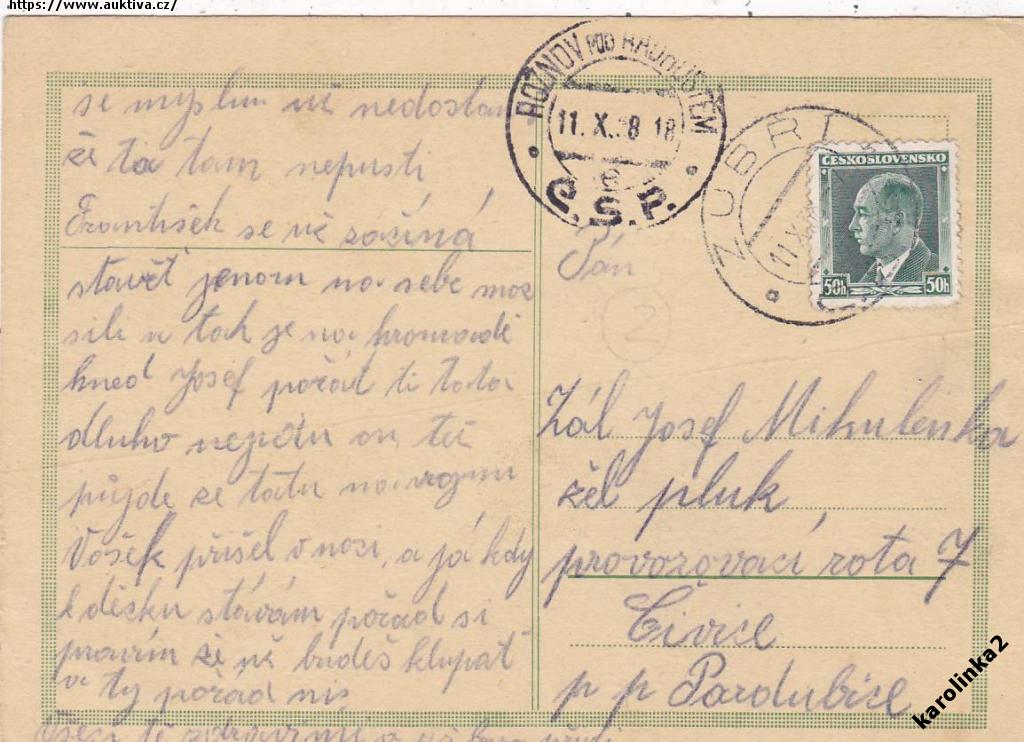 https://www.auktiva.cz/
se myslim už nedostan
že ta tam nepusti
František se už začíná
stavět jenom na sebe moc
sili a tak je na hromadě
hned Josef pořát ti tata
dluho nepíšu on též
půjde ze tatu na vojnu
Vašek přišel v noci, a já kdy
k děsku stávám pořád si
pravím že už budeš klupat
a ty pořád nis
Všeci tě zdravimi a
ROŽNOV POD RADHOŠTĚM
11. X. 38 18
Č.S.P.
ZUBŘÍ
11.X.
ČESKOSLOVENSKO
50h 50h
Pán
2
Zál Josef Mikulenka
žel pluk,
provozovací rota 7
Čivice
p p Pardubice
karolinka2